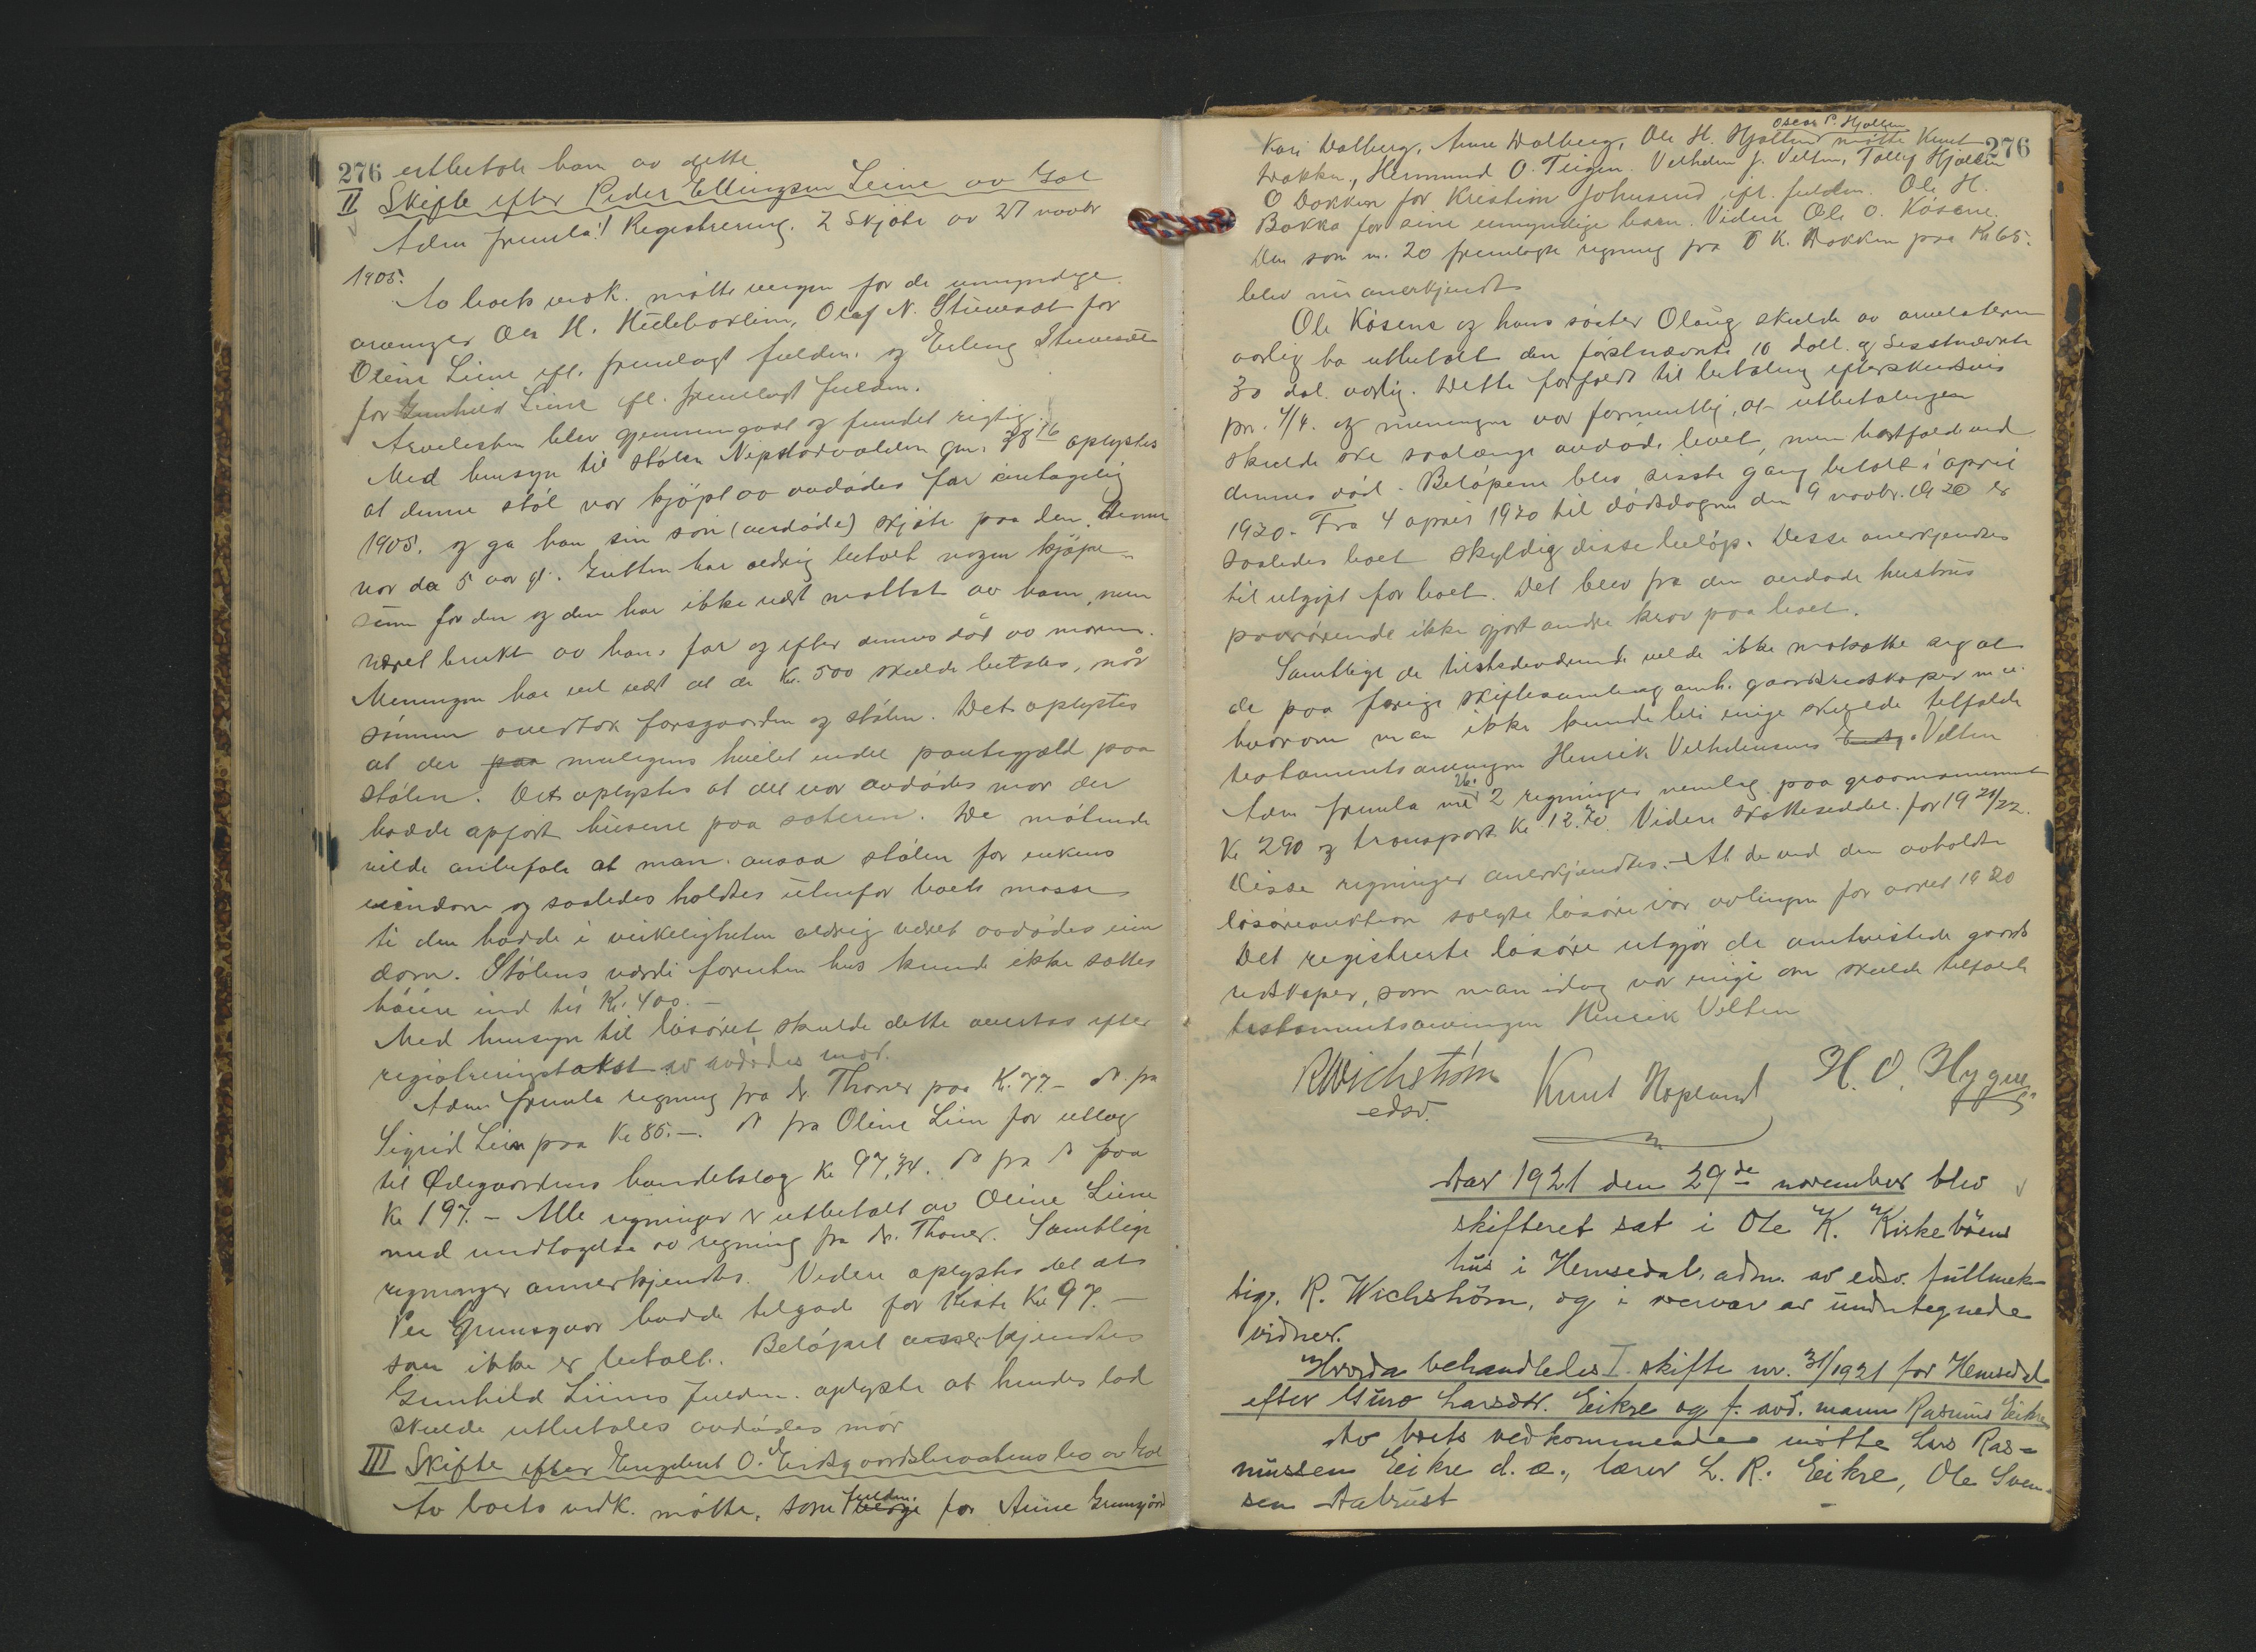 276 utbetale ham av dette
II Skifte efter Peder Ellingsen Leine av Gol
Adm fremla 1 Registrering. 2 Skjøte av 27 novbr
1905.
Av boets vedk. møtte vergen for de umyndige
arvinger Ole H. Olaf N. Stuvesæt for
Oline Leine efl. fremlagt fuldm. og Erling Stuvesæt
for Gunhild Leine efl. fremlagt fuldm.
Arvelisten blev gjennemgaat og fundet rigtig.
Med hensyn til stølen gnr. 38/16 oplystes
at denne støl var kjøpt av avdødes far
1905. og ga han sin søn (avdøde) skjøte paa den. Denne
var da 5 aar gl. Gutten har aldrig betalt nogen kjøpe-
sum for den og den har ikke vært mottat av ham, men
været brukt av hans far og efter dennes død av moren.
Meningen har vel vært at de Kr. 500 skulde betales, når
sønnen overtok farsgaarden og stølen. Det oplystes
at der paa muligens hviler endel pantegjæld paa
stølen. Det oplystes at det var avdødes mor der
hadde opført husene paa sæteren. De møtende
vilde anbefale at man ansaa stølen for enkens
eiendom og saaledes holdtes utenfor boets masse
ti den hadde i virkeligheten aldrig været avdødes eien
dom. Stølens værdi foruten hus kunde ikke sættes
høiere end til Kr. 400.-
Med hensyn til løsøret skulde dette overtas efter
registreringstakst av avdødes mor.
Adm fremla regning fra dr. Thoner paa Kr. 77.- do fra
Sigrid Lein paa Kr 85.-. do fra Oline Lien for utlæg
til Ødegaardens handelslag Kr 97,34. do fra do paa
Kr 197.- Alle regninger er utbetalt av Oline Leine
med undtagelse av regning fra dr. Thoner. Samtlige
regninger annerkjendtes. Videre oplystes det at
Per Grønsgaar hadde tilgode for kiste Kr 97.-
som ikke er betalt. Beløpet annerkjendtes
Gunhild Liens fuldm. oplyste at hendes lod
skulde utbetales avdødes mor
III Skifte efter Engebret O. Eidsgaardsbraatens bo av Gol
Av boets vedk. møtte, som fuldm. verge for Anne
276
Oscar P. Hjalten
Kari Dalberg, Anne Dalberg, Ole H. Hjalten møtte Knut
Dokken, Hermund O. Teigen. Vilhelm J. Velten, Tollef Hjalten
O Dokken for Kristian Johnsrud ifl. fuldm. Ole H.
Bakka for sine umyndige barn. Videre Ole O. Kósene.
Den som nr. 20 fremlagte regning fra O K. Dokken paa Kr 65.
blev nu anerkjendt
Ole Kósene og hans søster Olaug skulde av arvelateren
aarlig ha utbetalt den førstnævnte 10 dall. og sisstnævnte
30 dal. aarlig. Dette forfaldt til betaling efterskudsvis
pr. 4/4. og meningen var formentlig, at utbetalingen
skulde ske saalænge avdøde levet, men bortfalde ved
dennes død. Beløpene blev sisste gang betalt i april
1920. Fra 4 april 1920 til dødsdagen den 9 novbr. 1920 er
saaledes boet skyldig disse beløp. Disse anerkjendtes
til utgift for boet. Det blev fra den avdøde hustrus
paarørende ikke gjort andre krav paa boet.
Samtlige de tilstedeværende vilde ikke motsætte sig at
de paa forrige skiftesamling omh. gaardsredskaper m. v.
hvorom man ikke kunde bli enige skulde tilfalde
testamentsarvingen Henrik Vilhelmsens Velten
Adm fremla nr 26. 2 regninger nemlig paa gravmonument
Kr 290 og transport Kr 12.70. Videre skatteseddel for 1921/22.
Disse regninger anerkjendtes.- At de ved den avholdte
løsøreauktion solgte løsøre var avlingen for aaret 1920
Det registrerte løsøre utgjør de omtvistede gaards
redskaper, som man idag var enige om skulde tilfalde
testamentsarvingen Henrik Velten
RWichstrøm Knut Hopland H. O. Hygge
edsv.
Aar 1921 den 29de november blev
skifteret sat i Ole K. Kirkebøens
hus i Hemsedal, adm. av edsv. fullmek-
tig. R. Wichstrøm, og i nervær av undertegnede
vidner.
Hvorda behandledes I. skifte nr. 31/1921 for Hemsedal
efter Guro Larsdtr. Eikre og f. avd. mann Rasmus Eikre
Av boets vedkommende møtte Lars Ras-
mussen Eikre d. æ., lærer L. R. Eikre, Ole Sven-
sen Aabrust